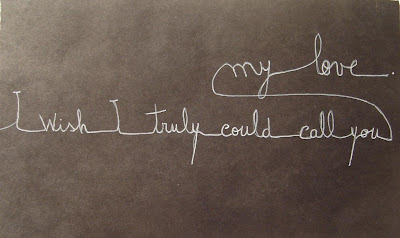 I wish I truly could call you
my love.